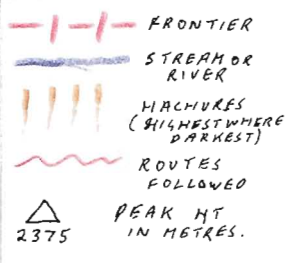 FRONTIER
STREAM OR
RIVER
HACHURES
(HIGHEST WHERE
DARKEST)
ROUTES
FOLLOWED
PEAK HT
IN METRES.
2375